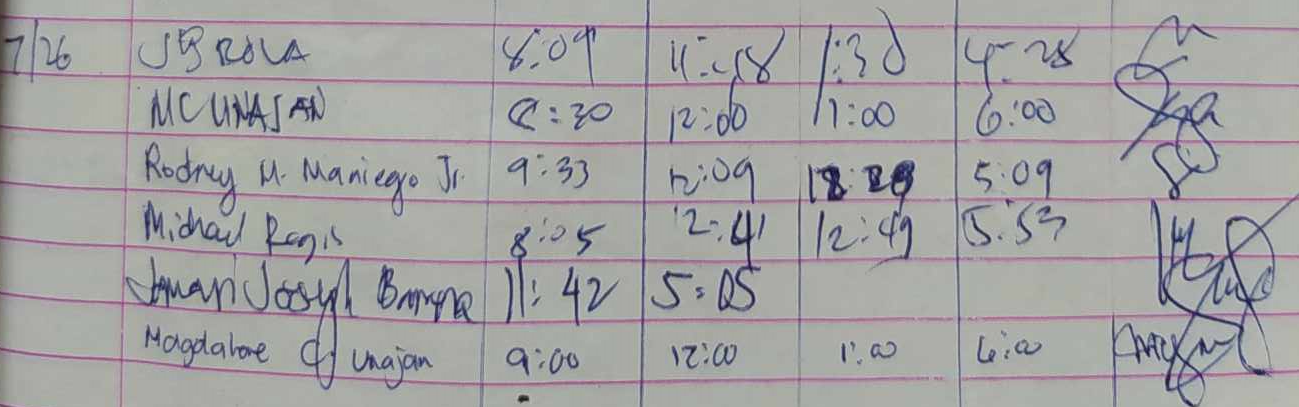 7/26 JB ROLA 8:09 11:58 1:30 4:28
MC UNAJAN 8:30 12:00 1:00 6:00
Rodney M. Maniego Jr. 9:33 12:09 5:09
Michael Regis 8:05 12:41 12:49 5:53
Joseph 11:42 5:05
Magdalene Unajan 9:00 12:00 1:00 6:00